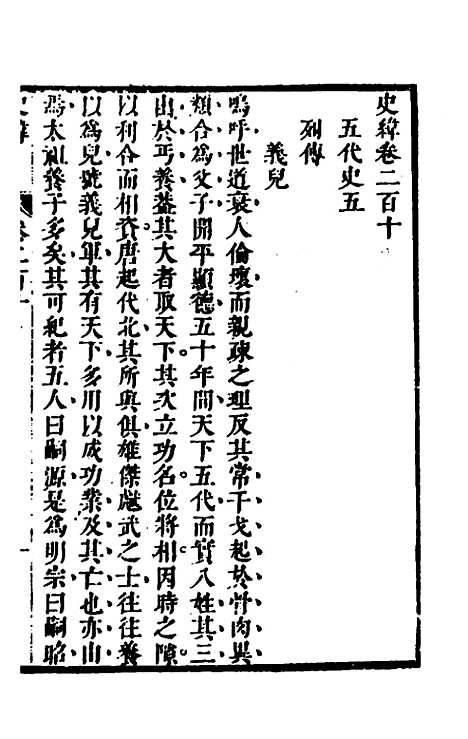 史緯卷二百十
五代史五
列傳
義兒
嗚呼世道衰人倫壞而親疎之理反其常干戈起於骨肉異
類合爲父子開平顯德五十年間天下五代而實八姓其三
出於丐養蓋其大者取天下其次立功名位將相因時之隙
以利合而相資唐起代北其所與俱雄傑虣武之士往往養
以爲兒號義兒軍其有天下多用以成功業及其亡也亦由
焉太祖養子多矣其可紀者五人曰嗣源是爲明宗曰嗣昭